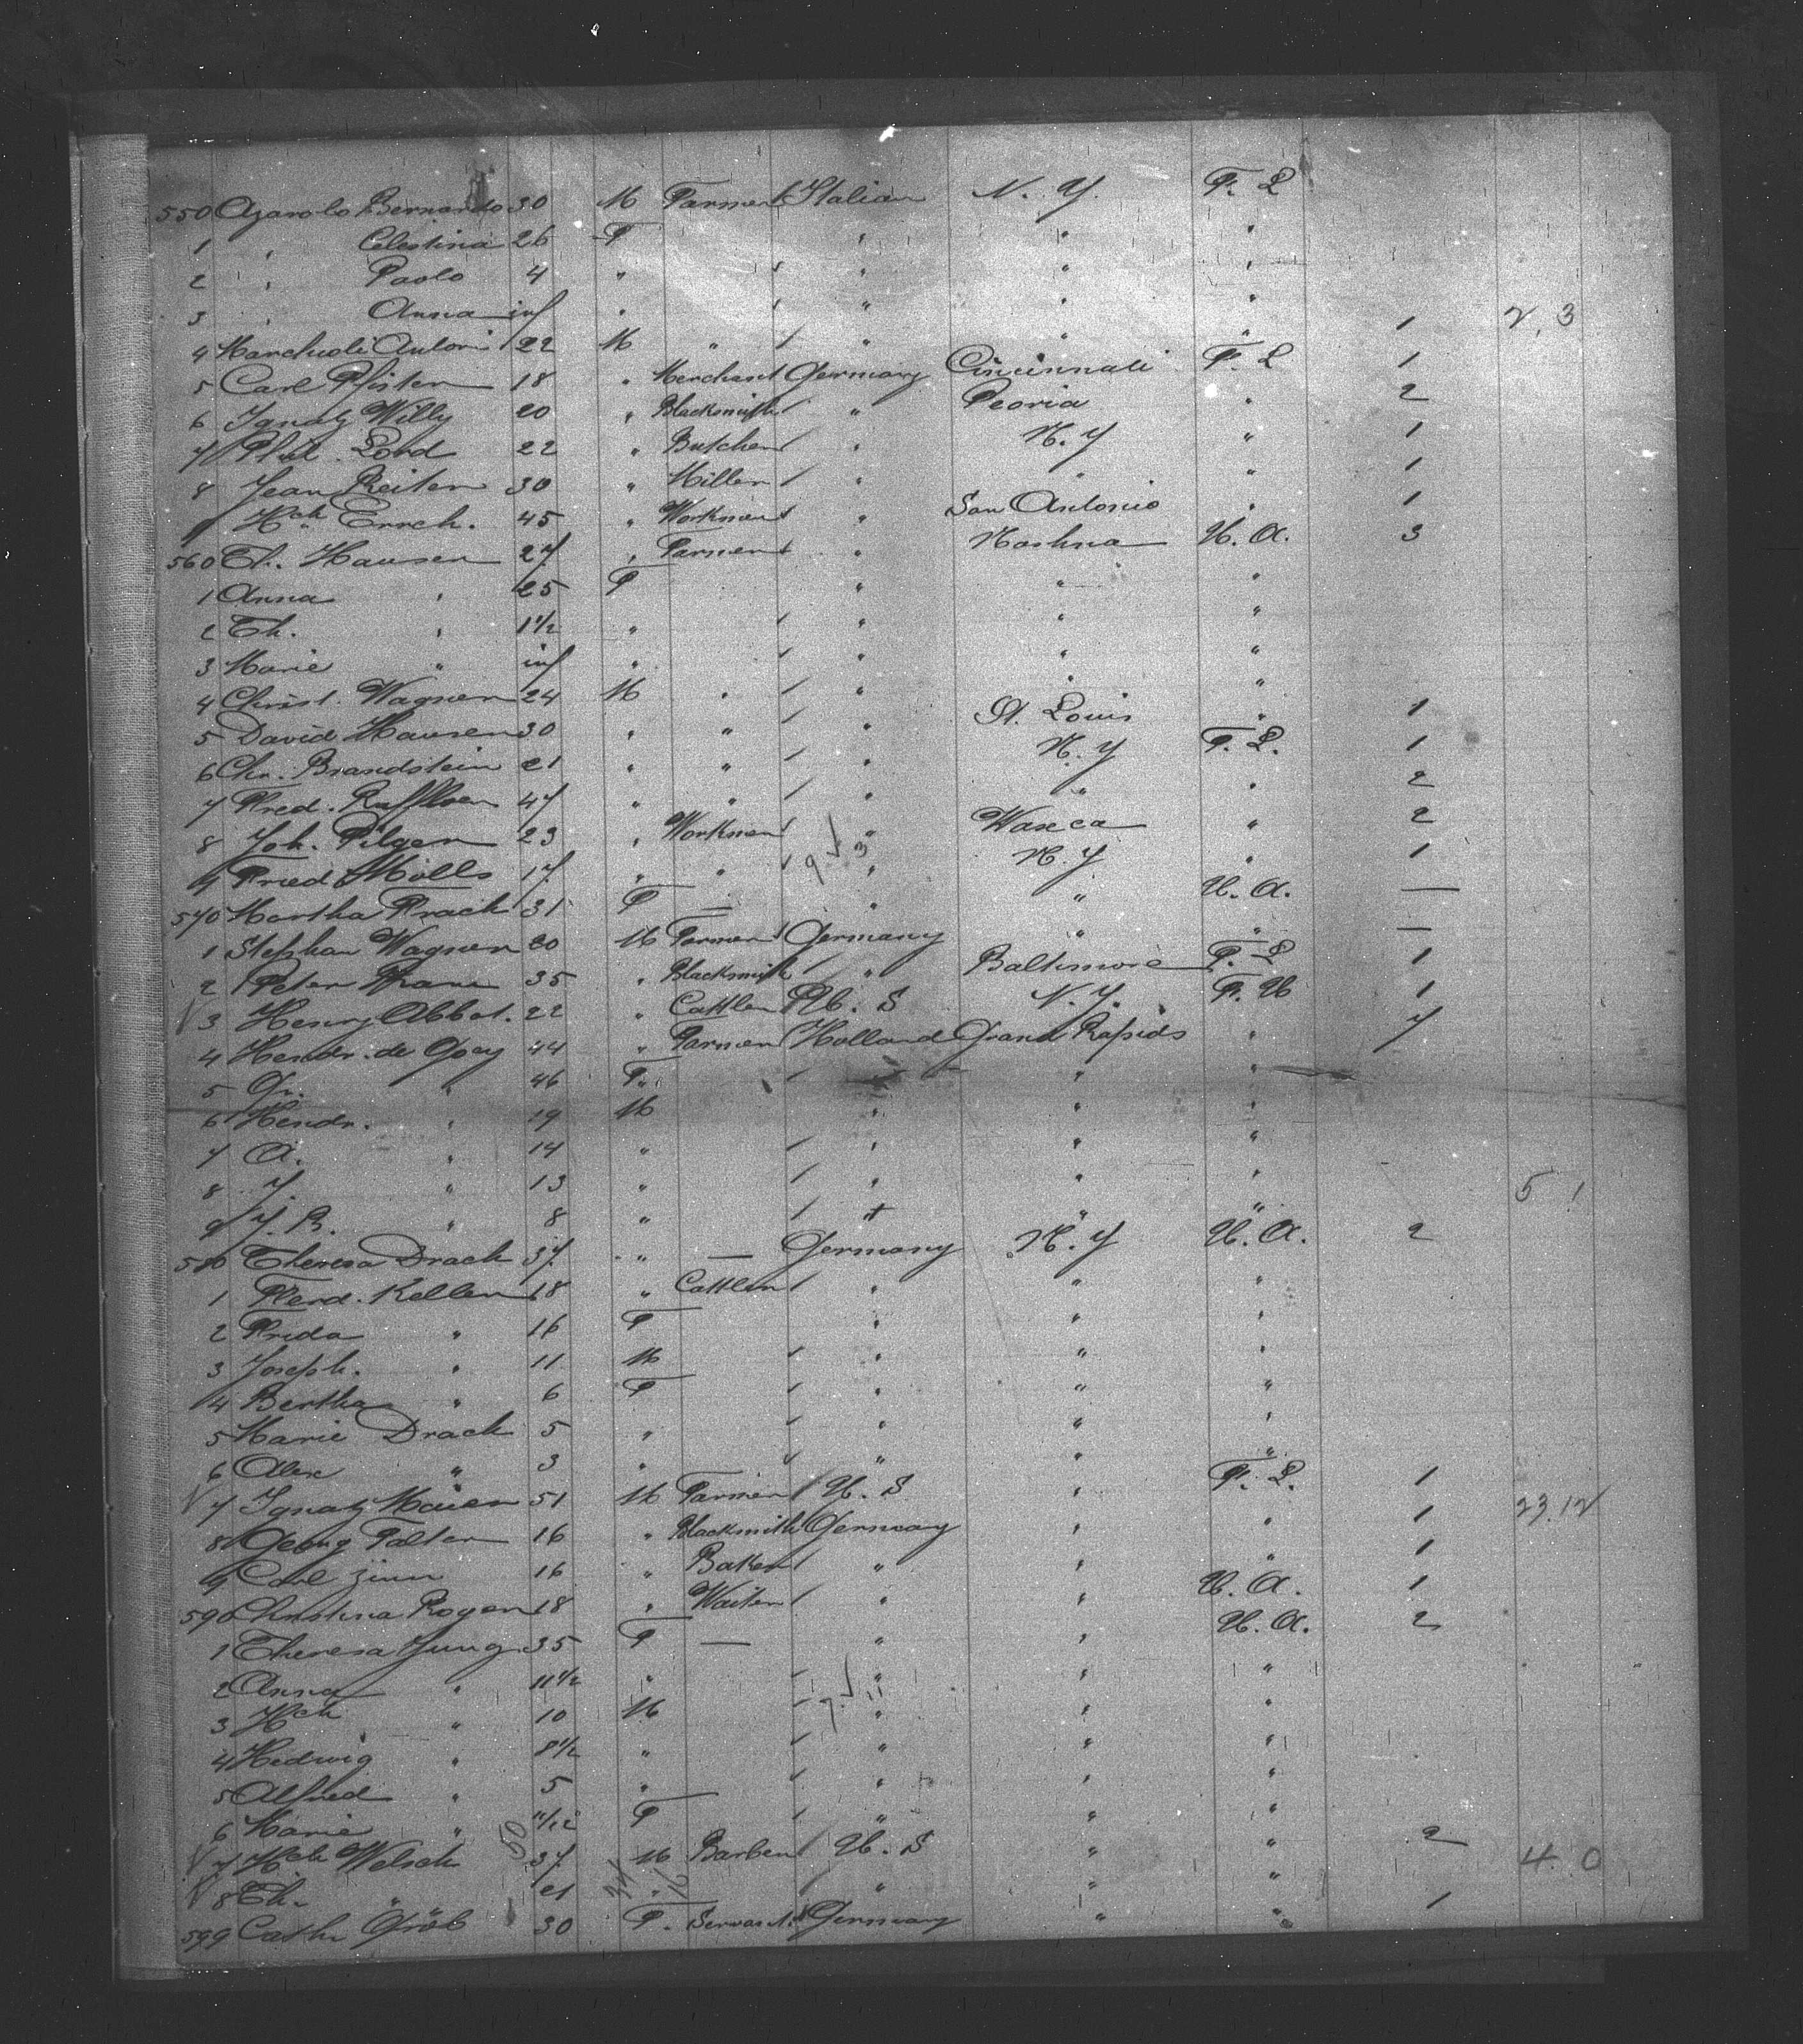 550 Azarolo Bernardo 30 M Farmer Italian N. Y. F. L
1 " Celestina 26 F " " "
2 " Paolo 4 " " " "
3 " Anna inf " " " "
4 Marchioli Antoni 22 M " " " " 1 2, 3
5 Carl Pfister 18 " Merchant Germany Cincinnati F. L 1
6 Ignatz Willy 20 " Blacksmith " Peoria " 2
7 Phil. Lord 22 " Butcher " N. Y " 1
8 Jean Reiter 30 " Miller " " " 1
9 Hch Errch. 45 " Workman " San Antonio " 1
560 Th. Hausen 27 " Farmer " Nashua U. A. 3
1 Anna " 25 F " " "
2 Th. " 1 1/2 " " " "
3 Marie " inf " " " "
4 Christ. Wagner 24 M " " " "
5 David Hausen 30 " " " St. Louis " 1
6 Chr. Brandstein 21 " " " N. Y F. L. 1
7 Fred. 47 " " " " " 2
8 Joh. Pilger 23 " Workman " Waseca " 2
9 Fried Mölls 17 " " " N. Y " 1
570 Martha Frach 31 F — " " U. A. —
1 Stephan Wagner 20 M Farmer Germany " " —
2 Peter 35 " Blacksmith " Baltimore F. L 1
3 Henry Abbot. 22 " Cattler U. S N. Y. F. U 1
4 Hendr. de Goey 44 " Farmer Holland Grand Rapids " 7
5 Gr. " 46 F " " "
6 Hendr. " 19 M " " "
7 A. " 14 " " " "
8 J. " 13 " " " " 5 1
9 J. B. " 8 " " " "
580 Theresa Drach 37 " — Germany N. Y U. A. 2
1 Ferd. Keller 18 " Cattler " " "
2 Frida " 16 F " " "
3 Joseph. " 11 M " " "
4 Bertha " 6 F " " "
5 Marie Drach 5 " " " "
6 Alex " 3 " " " "
7 Ignatz Maier 51 M Farmer U. S " F. L. 1
8 Georg Falter 16 " Blacksmith Germany " " 1 23.12
9 Carl Zinn 16 " Baker " " " 1
590 Christina Roger 18 " Waiter " " U. A. 1
1 Theresa Jung 35 F — " " U. A. 2
2 Anna " 11 1/2 " " " "
3 Hch " 10 M " " "
4 Hedwig " 8 1/2 " " " "
5 Alfred " 5 " " " "
6 Marie " 11/12 F " " "
7 Hch Welsch 37 M Barber U. S " " 2
8 Th. " 21 " " " " 4 0
599 Cath. Gröb 30 F. Servant Germany " " 1